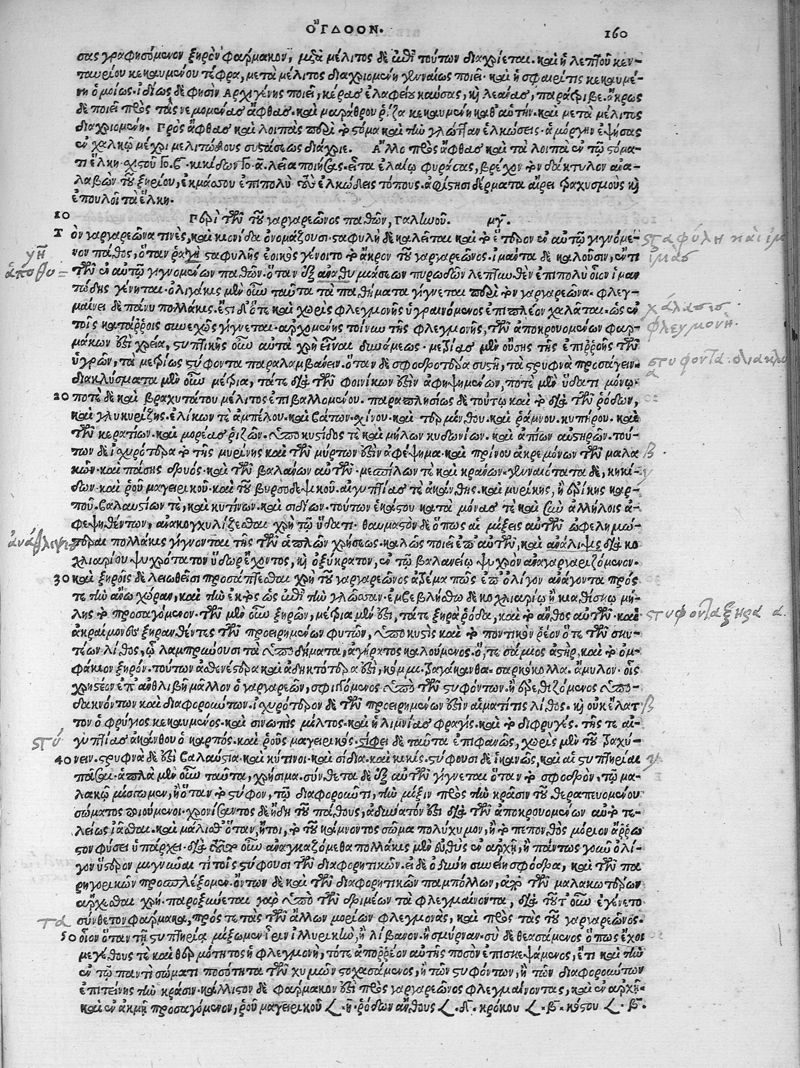 ὌΓΔΟΟΝ. 160
σας γραφησόμενον ξηρὸν φάρμακον, μετὰ μέλιτος δὲ ἐπὶ τούτων διαχρίεται. καὶ ἡ λεπτοῦ κεν-
ταυρίου κεκαυμένου τέφρα, μετὰ μέλιτος διαχριομένη γενναίως ποιεῖ. καὶ ἡ σφαιρῖτις κεκαυμέ-
νη ὁμοίως. ἰδίως δέ φησιν Ἀρχιγένης ποιεῖν, κέρας ἐλαφεῖα καύσας, καὶ λεάνας, παράτριβε. ἄκρως
δὲ ποιεῖ πρὸς τὰς νεμομένας ἄφθας. καὶ μαράθρου ῥίζα κεκαυμένη καθ' αὑτὴν. καὶ μετὰ μέλιτος
διαχριομένη. Πρὸς ἄφθας καὶ λοιπὰς περὶ τὸ στόμα καὶ τὴν γλῶτταν ἑλκώσεις. ἀμόργην ἑψήσας
ἐν χαλκῷ μέχρι μελιτώδους συστάσεως διάχριε. Ἄλλο πρὸς ἄφθας καὶ τὰ λοιπὰ ἐν τῷ στόμα-
τι ἕλκη. κικίδων λεῖα ποιήσας. εἶτα ἐλαίῳ φυράσας, βρέχων τὸν δάκτυλον ἀνα-
λαβὼν τοῦ ξηρίου, ἐκμάσσου ἐπιπολὺ τοὺς ἑλκώδεις τόπους. ἀφίστησι δέρματα αἴρει τραχυσμοὺς καὶ
ἐπουλοῖ τὰ ἕλκη.
10 Περὶ τῶν τοῦ γαργαρεῶνος παθῶν, Γαληνοῦ. μγ.
Τὸν γαργαρεῶνα τινὲς, καὶ κιονίδα ὀνομάζουσι. σταφυλὴ δὲ καλεῖται καὶ τὸ ἕτερον ἐν αὐτῷ γιγνόμε-
νον πάθος, ὅταν ῥαγὶ σταφυλῆς ἐοικὸς γένοιτο τὸ ἄκρον τοῦ γαργαρεῶνος. ἱμάντα δὲ καλοῦσιν, ἕν τι
τῶν ἐν αὐτῷ γιγνομένων παθῶν. ὅταν ἐξ λεπτυνθὲν ἐπιπολὺ οἷον ἱμαν-
τῶδης γένηται. ὀλιγάκις μὲν οὖν ταῦτα τὰ παθήματα γίγνεται περὶ τὸν γαργαρεῶνα. φλεγ-
μαίνει δὲ πάνυ πολλάκις. ἔστι δ' ὅτε καὶ χωρὶς φλεγμονῆς ὑγραινόμενος ἐπιπλέον χαλᾶται. ὡς ἐν
τοῖς κατάρροις συνεχῶς γίγνεται. ἀρχομένης τοίνυν τῆς φλεγμονῆς, τῶν ἀποκρουομένων φαρ-
μάκων ἐστὶ χρεία, στυπτικῆς οὖν αὐτὰ χρὴ εἶναι δυνάμεως. μετρίας μὲν οὔσης τῆς ἐπιρροῆς τῶν
ὑγρῶν, τὰ μετρίως στύφοντα παραλαμβάνειν. ὅταν δὲ σφοδροτέρα συστῇ, τὰ στρυφνὰ προσάγειν.
διακλύσματα μὲν οὖν μέτρια, τά τε διὰ τῶν φοινίκων ἐστὶν ἀφηψημένων, ποτὲ μὲν ὕδατι μόνῳ.
20 ποτὲ δὲ καὶ βραχυτάτου μέλιτος ἐπιβαλλομένου. παραπλησίως δὲ τούτῳ καὶ τὸ διὰ τῶν ῥόδων,
καὶ γλυκυρίζης. ἑλίκων τε ἀμπέλου. καὶ βάτων. σχίνου. καὶ τερμίνθου. καὶ ῥάμνου. κυπήρου. καὶ
τῶν κερατίων. καὶ μορέας ῥιζῶν. ἀπὸ κυτίδος τε καὶ μήλων κυδωνίων. καὶ ἀπίων αὐστηρῶν. τού-
των δὲ ἰσχυρότερα τό τε τῆς μυρίνης καὶ τῶν μύρτων ἐστὶν ἀφέψημα. καὶ πρίνου ἀκρεμόνων τῶν μαλα
κῶν. καὶ πάσης δρυὸς. καὶ τῶν βαλάνων αὐτῶν. μεσπίλων τε καὶ κράνων. γενναιότατα δὲ, κηκί-
δων. καὶ ῥοῦ μαγειρικοῦ. καὶ τοῦ βυρσοδεψικοῦ. αἰγυπτίας τε ἀκάνθης. καὶ μυρίκης, ἢ καρ-
ποῦ. βαλαυστίων τε, καὶ κυτίνων. καὶ σιδίων. τούτων ἕκαστον κατὰ μόνας τε καὶ σὺν ἀλλήλοις ἀ-
φεψηθέντων, ἀνακογχυλίζεσθαι χρὴ τῷ ὕδατι. θαυμαστὸν δὲ ὅπως αἱ μίξεις αὐτῶν ὠφελιμώ-
τεραι πολλάκις γίγνονται τῆς τῶν ἁπλῶν χρήσεως. καλῶς ποιεῖ ἐπ' αὐτῶν, καὶ ἀνάλιψις διὰ κο
χλιαρίου. ψυχρότατον ὕδωρ ἔχοντος, ἢ ὀξύκρατον, ἐν τῷ βαλανείῳ. ψυχρὸν ἀναγαργαριζόμενον.
30 καὶ ξηροῖς δὲ λειωθεῖσι προσάπτεσθαι χρὴ τοῦ γαργαρεῶνος ἀτρέμα πῶς ἐπ' ὀλίγον ἀνάγοντα πρός
τε τὴν ἄνω χώραν, καὶ τὴν ἐκτὸς ὡς ἐπὶ τὴν γλῶσσαν. ἐμβεβλήσθω δὲ κοχλιαρίῳ ἢ καθίστῳ μή-
λης τὸ προσαγόμενον. τῶν μὲν οὖν ξηρῶν, μέτρια μὲν ἐστὶ, τά τε ξηρὰ ῥόδα, καὶ τὸ ἄνθος αὐτῶν. καὶ
ἀκραίμονες ξηρανθέντες τῶν προειρημένων φυτῶν, καὶ τὸ ποντικὸν ῥέον ὅ τε τῶν σκυ-
τέων λίθος, ᾧ λαμπρύνουσι τὰ ὑποδήματα, ἀγήρατος καλούμενος. ὅ, τε σάμιος ἀστὴρ, καὶ τὸ ὀμ-
φάκιον ξηρόν. τούτων ἀσθενέστερα καὶ ἀδηκτότερα ἐστὶ, κόμμι. τραγάκανθα. σαρκόκολλα. ἄμυλον. οἷς
χρηστέον ἐπ' ἂν θλιβῇ μᾶλλον ὁ γαργαρεών, στριφόμενος ὑπὸ τῶν στυφόντων. ἢ ἐρεθιζόμενος ὑπὸ
δακνόντων καὶ διαφορούντων. ἰσχυρότερον δὲ τῶν προειρημένων ἐστὶν αἱματίτης λίθος. καὶ οὐκ ἔλατ
τον ὁ φρύγιος κεκαυμένος. καὶ σινωπὶς μίλτος. καὶ ἡ λιμνίας σφραγὶς. καὶ τὸ διφρυγὲς. τῆς τε αἰ-
γυπτίας ἀκάνθου ὁ καρπὸς. καὶ ῥοῦς μαγειρικὸς. στύφει δὲ ταῦτα ἐπιφανῶς, χωρὶς μὲν τοῦ τραχύ-
40 νειν. στρυφνὰ δὲ ἐστὶ βαλαύστια, καὶ κύτινοι. καὶ σίδια. καὶ κικὶς. στύφουσι δὲ ἱκανῶς, καὶ αἱ στυπτηρίαι
πᾶσαι. ἁπλᾶ μὲν οὖν ταῦτα, χρήσιμα. σύνθετα δὲ ἐξ αὐτῶν γίγνεται ὅταν τὸ σφοδρὸν, τῷ μα-
λακῷ μίσγωμεν, ἢ ὅταν τὸ στύφον, τῷ διαφοροῦντι, τὴν μίξιν πρὸς τὴν κρᾶσιν τοῦ θεραπευομένου
σώματος ποιούμενοι. χρονίσαντος δὲ ἤδη τοῦ πάθους, ἀδύνατόν ἐστι διὰ τῶν ἀποκρουομένων αὐτὸ τε-
λείως ἰᾶσθαι. καὶ μάλισθ' ὅταν, ἤτοι, τὸ τοῦ κάμνοντος σῶμα πολύχυμον, ἢ τὸ πεπονθὸς μόριον ἄρρω
στον φύσει ὑπάρχει. διὰ τοῦτο οὖν ἀναγκαζόμεθα πολλάκις μὲν εὐθὺς ἐν ἀρχῇ, ἢ πάντως γοῦν ὀλί-
γον ὕστερον μιγνύναι τι τοῖς στύφουσι τῶν διαφορητικῶν. εἰ δ' ὀδύνη συνείη σφοδρὰ, καὶ τῶν πα
ρηγορικῶν προσπλέξομεν. ὄντων δὲ καὶ τῶν διαφορητικῶν παμπόλλων, ἀπὸ τῶν μαλακωτέρων
ἄρχεσθαι χρή. παροξύνεται γὰρ ὑπὸ τῶν δριμέων τὰ φλεγμαίνοντα, διὰ τοῦτ' οὖν ἐγένετο
σύνθετον φάρμακα, πρός τε τὰς τῶν ἄλλων μορίων φλεγμονὰς, καὶ πρὸς τὰς τοῦ γαργαρεῶνος.
50 οἷον ὅταν τῇ στυπτηρίᾳ μίξωμεν ἶριν ἰλλυρικὴν, ἢ λίβανον. ἢ σμύρναν. σὺ δὲ θεασάμενος ὅπως ἔχει
μεγέθους τε καὶ θερμότητος ἡ φλεγμονὴ, τότε ἀπορρέον αὐτῆς ποσὸν ἐπισκεψάμενος, ἔτι καὶ τὴν
ἐν τῷ παντὶ σώματι ποσότητα τῶν χυμῶν στοχασάμενος, ἢ τῶν στυφόντων, ἢ τῶν διαφορούντων
ἐπιτείνης τὴν κρᾶσιν. κάλλιστον δὲ φάρμακόν ἐστι πρὸς γαργαρεῶνας φλεγμαίνοντας, καὶ ἐν ἀρχῇ-
καὶ ἐν ἀκμῇ προσαγόμενον, ῥοῦ μαγειρικοῦ 𐅻. η. ῥόδων ἄνθους 𐅻. δ. κρόκου 𐅻. β. κόστου 𐅻. β.
σταφύλη καὶ
ἱμας
χάλασις
φλεγμονή.
στύφοντα. διακλύ
β.
στύφοντα ξηρὰ α.
β
γ.
στύ
τα